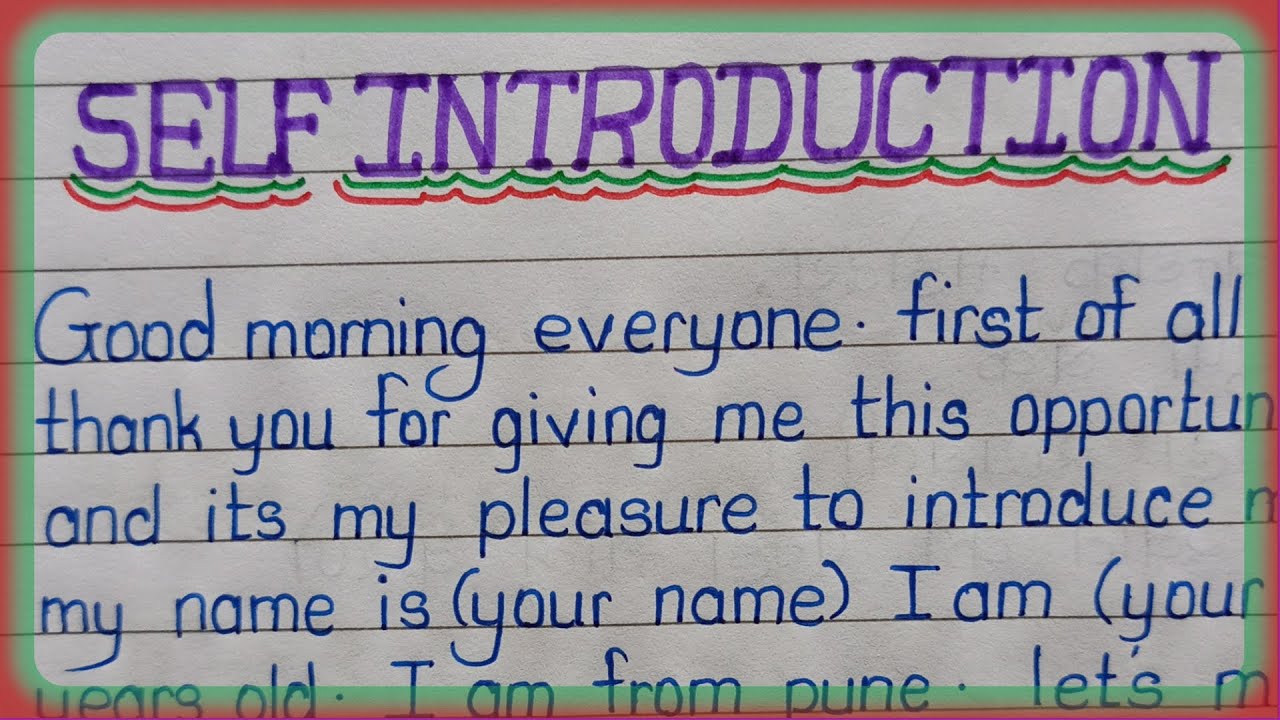 SELF INTRODUCTION
Good morning everyone. first of all
thank you for giving me this opportun
and its my pleasure to introduce m
my name is (your name) I am (your
years old. I am from pune. let's m